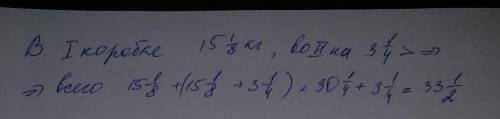 В I коробке 15 1/8 кг, во II на 3 1/4 > ⇒
⇒ всего 15 1/8 + (15 1/8 + 3 1/4) = 30 1/4 + 3 1/4 = 33 1/2